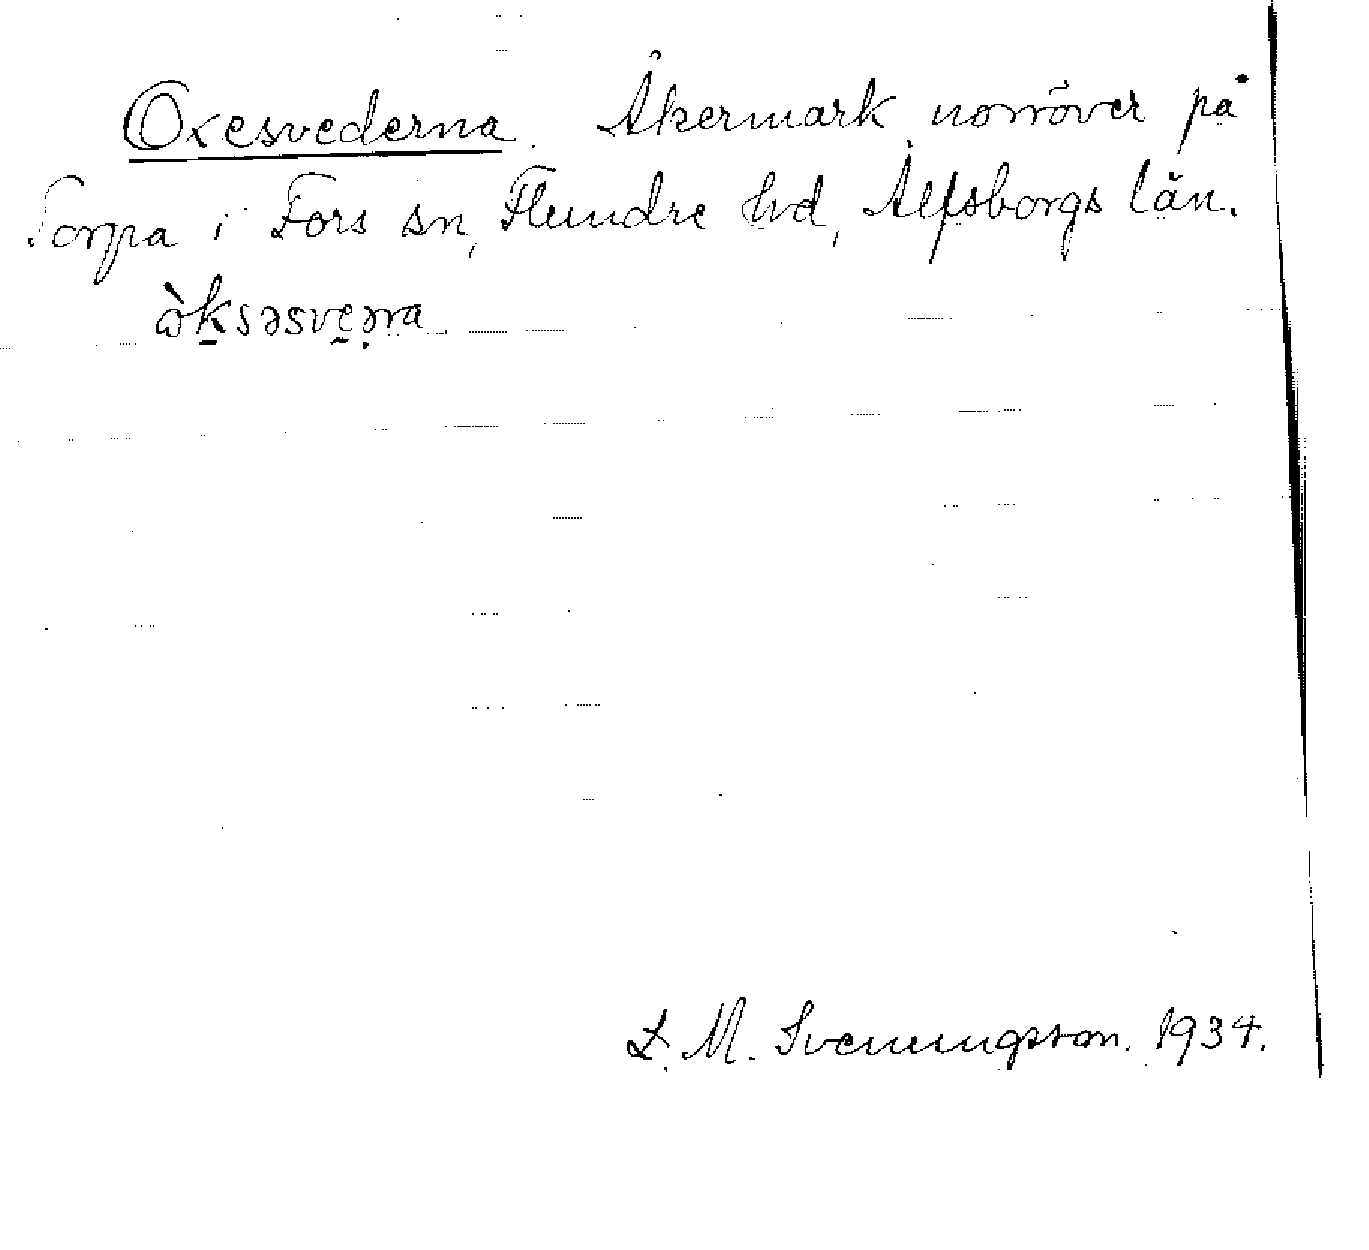 Oxesvederna. Åkermark norröver på
Torpa i Fors sn, Flundre hd, Älfsborgs län.
ὼksəsve̯ə̣ra
L. M. Svenungsson. 1934.